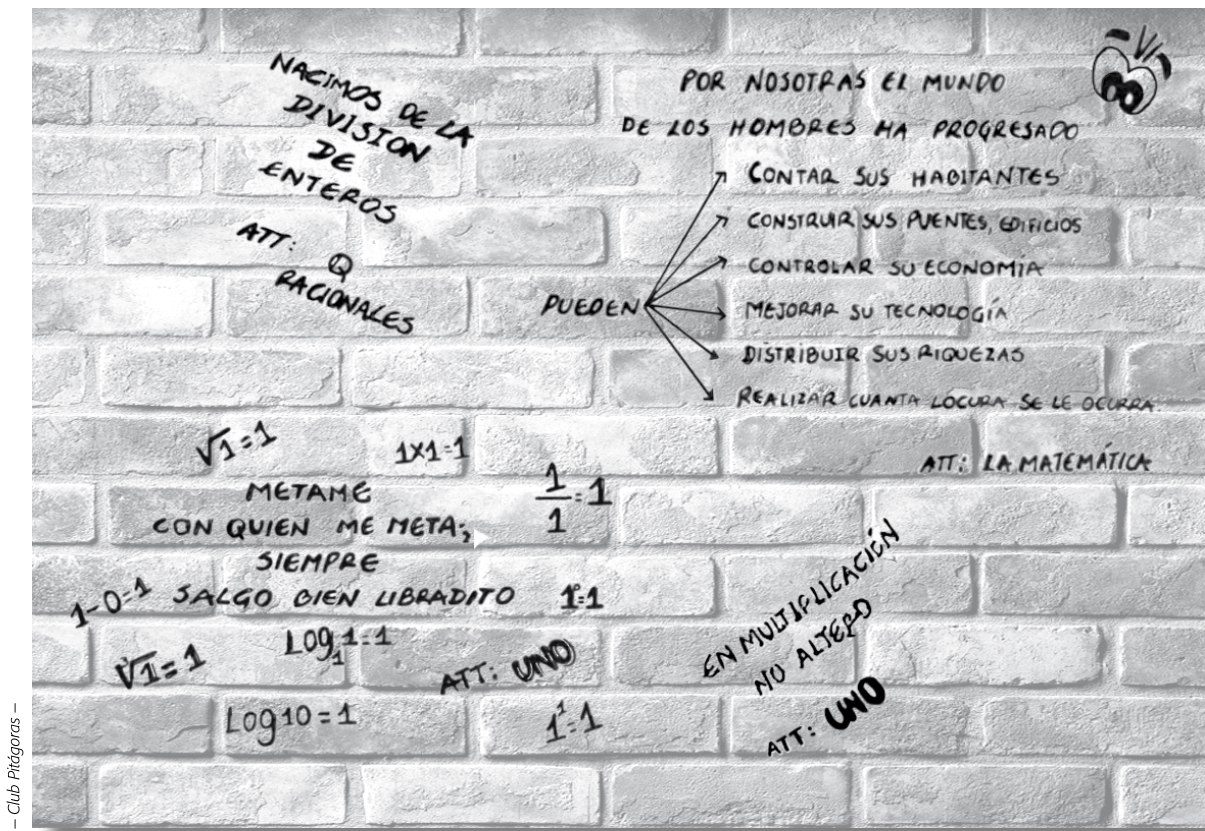 NACIMOS DE LA
DIVISION
DE
ENTEROS
ATT: Q
RACIONALES
POR NOSOTRAS EL MUNDO
DE LOS HOMBRES HA PROGRESADO
PUEDEN
CONTAR SUS HABITANTES
CONSTRUIR SUS PUENTES, EDIFICIOS
CONTROLAR SU ECONOMÍA
MEJORAR SU TECNOLOGÍA
DISTRIBUIR SUS RIQUEZAS
REALIZAR CUANTA LOCURA SE LE OCURRA.
ATT: LA MATEMÁTICA
√1=1
1x1=1
1/1=1
METAME
CON QUIEN ME META;
SIEMPRE
SALGO BIEN LIBRADITO
1-0=1
1⁰=1
√1=1
LOG₁1=1
ATT: UNO
LOG10=1
1¹=1
EN MULTIPLICACIÓN
NO ALTERO
ATT: UNO
– Club Pitágoras –